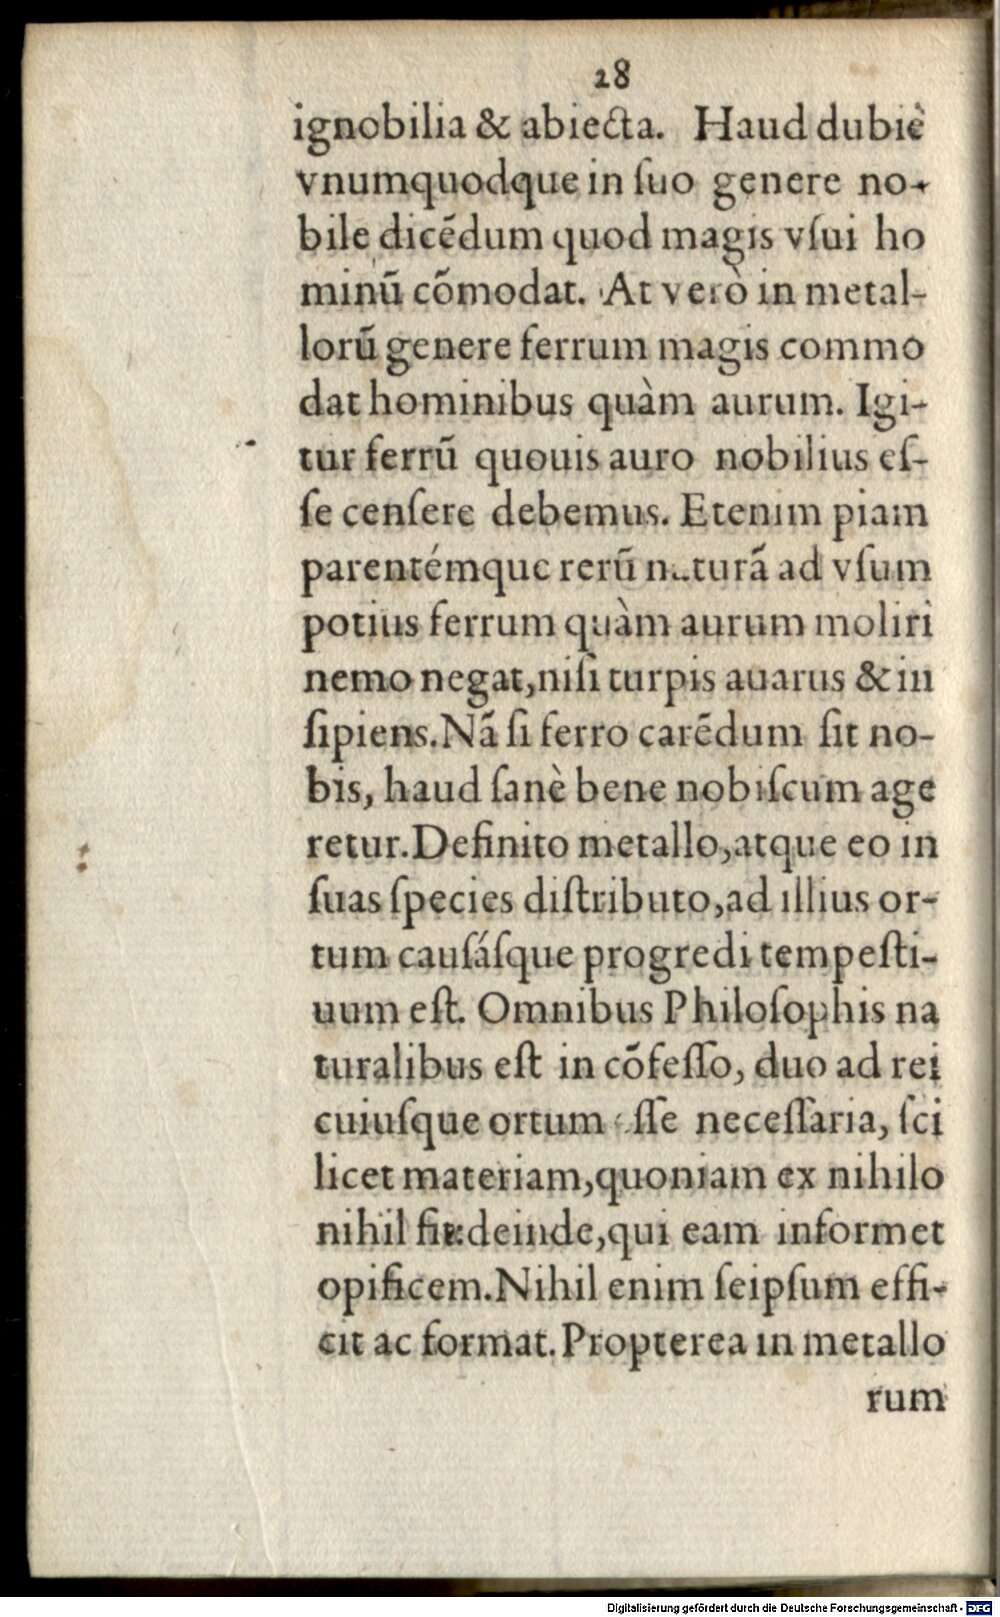 28
ignobilia & abiecta. Haud dubiè
vnumquodque in ſuo genere no-
bile dicēdum quod magis vſui ho
minū cōmodat. At verò in metal-
lorū genere ferrum magis commo
dat hominibus quàm aurum. Igi-
tur ferrū quouis auro nobilius eſ-
ſe cenſere debemus. Etenim piam
parentémque rerū naturā ad vſum
potius ferrum quàm aurum moliri
nemo negat,niſi turpis auarus & in
ſipiens.Nā ſi ferro carēdum ſit no-
bis, haud ſanè bene nobiſcum age
retur.Definito metallo,atque eo in
ſuas ſpecies diſtributo,ad illius or-
tum cauſáſque progredi tempeſti-
uum eſt. Omnibus Philoſophis na
turalibus eſt in cōfeſſo, duo ad rei
cuiuſque ortum eſſe neceſſaria, ſci
licet materiam,quoniam ex nihilo
nihil fit:deinde,qui eam informet
opificem.Nihil enim ſeipſum effi-
cit ac format. Propterea in metallo
rum
Digitalisierung gefördert durch die Deutsche Forschungsgemeinschaft - DFG